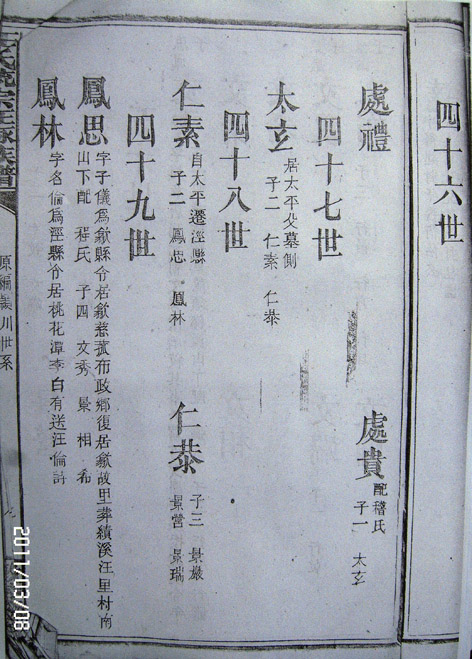 四十六世
處禮
處貴
配稽氏
子一 太玄
四十七世
太玄
居太平父墓側
子二 仁素 仁恭
四十八世
仁素
自太平遷涇縣
子二 鳳思 鳳林
仁恭
子三 景嚴
景營 景瑞
四十九世
鳳思
字子儀爲歙縣令居歙慈孤布政鄉復居歙故里葬績溪汪里村南
山下配 程氏 子四 文秀 景 相 希
鳳林
字名倫爲涇縣令居桃花潭李白有送汪倫詩
族譜
原編 川世系
2011/03/08